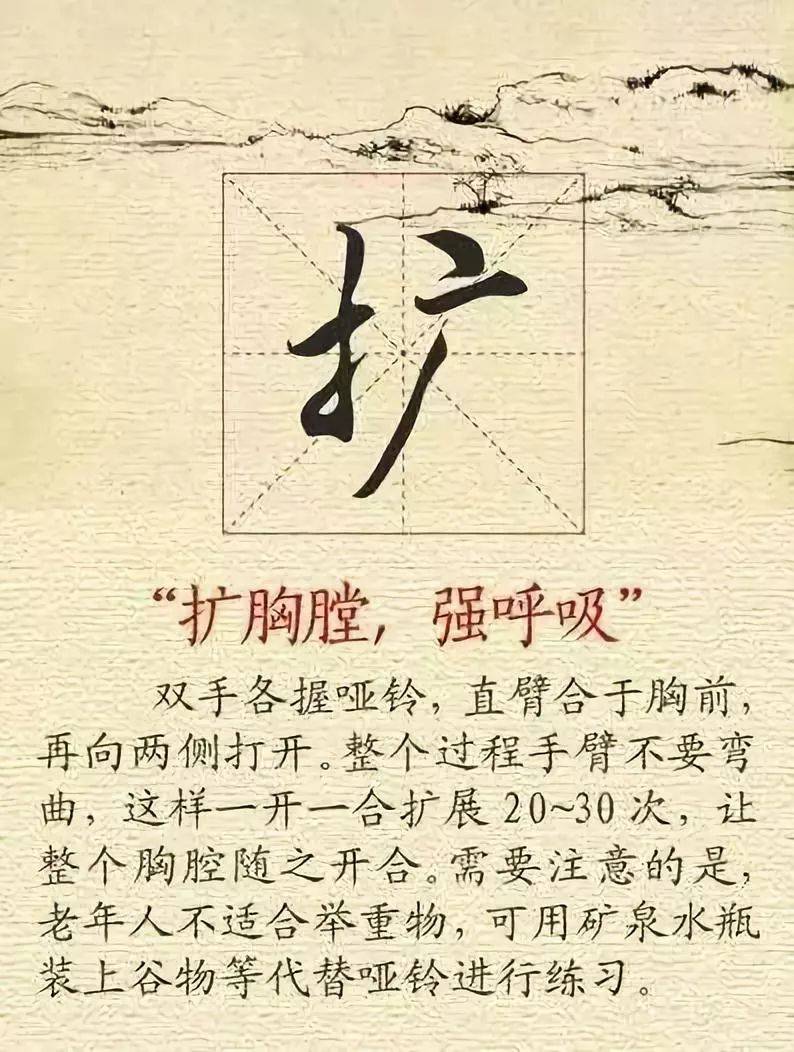 扩
“扩胸膛，强呼吸”
双手各握哑铃，直臂合于胸前，
再向两侧打开。整个过程手臂不要弯
曲，这样一开一合扩展 20~30 次，让
整个胸腔随之开合。需要注意的是，
老年人不适合举重物，可用矿泉水瓶
装上谷物等代替哑铃进行练习。